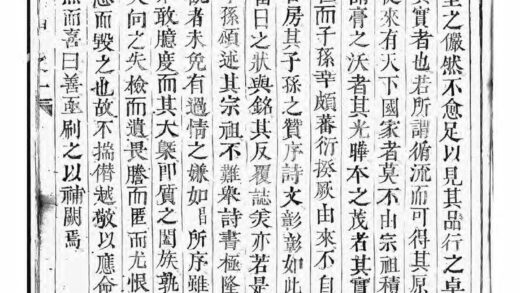 之儼然不愈足以見其品行之卓
其實者也若所謂循流而可得其原
從來有天下國家者莫不由宗祖積
謂膏之沃者其光曄本之茂者其實
但而子孫幸頗蕃衍揆厥由來不自
各房其子孫之贊序詩文彰彰如此
當日之狀與銘其反覆誌矣亦若是
孫頌述其宗祖不難舉詩書極隆
說者未免有過情之嫌如昌所序雖
敢臆度而其大槩即質之闔族孰
失問之失檢而遺畏賸而匿而尤恨
忽而毀之也故不揣僭越敬以應命
然而喜曰善亟刷之以補闕焉